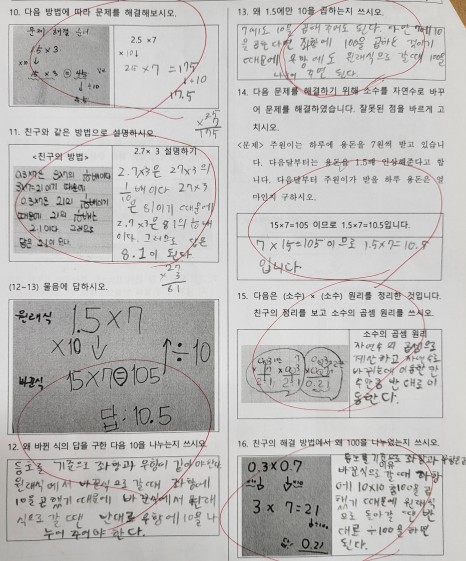 10. 다음 방법에 따라 문제를 해결해보시오.
문제 해결
1.5 × 3
×10↓
15 × 3 = 45
4.5
2.5 ×7
×10↓
25 ×7 =175
↓÷10
17.5
25
× 7
175
11. 친구와 같은 방법으로 설명하시오
<친구의 방법>
0.3×7은 3×7의 1/10배이다
3×7=21이기 때문에
0.3×7은 21의 1/10배이기
때문에 21의 1/10배는
2.1이다. 그러므로
답은 2.1이 된다.
2.7× 3 설명하기
2.7×3은 27×3의
1/10배이다 27×3
은 81이기 때문에
2.7×3은 81의 1/10배
이다. 그러므로 답은
8.1이 된다.
27
× 3
81
(12~13) 물음에 답하시오.
원래식 1.5×7
×10↓ ↑÷10
바뀐식 15×7=105
답: 10.5
12. 왜 바뀐 식의 답을 구한 다음 10을 나누는지 쓰시오.
등호를 기준으로 좌항과 우항이 같아야한다.
원래식에서 바뀐식으로 갈때 좌항에
10을 곱했기 때문에 바뀐식에서 원래
식으로 갈 땐 반대로 우항에 10을 나
누어 주어야 한다.
13. 왜 1.5에만 10을 곱하는지 쓰시오.
7에도 10을 곱해 주어도 된다.
때문에 우항에도 원래식으로 갈때 100을
나누어 주면 된다.
14. 다음 문제를 해결하기 위해 소수를 자연수로 바꾸
어 문제를 해결하였습니다. 잘못된 점을 바르게 고
치시오.
<문제> 주원이는 하루에 용돈을 7원씩 받고 있습니
다. 다음달부터는 용돈을 1.5배 인상해준다고 합
니다. 다음달부터 주원이가 받을 하루 용돈은 얼
마인지 구하시오.
15×7=105 이므로 1.5×7=10.5입니다.
7×15=105이므로 1.5×7=10.5
입니다.
15. 다음은 (소수) × (소수) 원리를 정리한 것입니다.
친구의 정리를 보고 소수의 곱셈 원리를 쓰시오.
소수의 곱셈 원리
자연수의 곱셈으로
계산하고 자연수로
바꾸는데 이용한 만
수만큼 반대로 이
동한다.
16. 친구의 해결 방법에서 왜 100을 나누었는지 쓰시오.
0.3×0.7
3 × 7 = 21
↓÷100
답: 0.21
등호를 기준으로 좌항과 우항은 같다
바뀐식으로 갈때 좌항
에 10×10 즉 100을 곱
했기 때문에 원래식
으로 돌아갈 때 반
대로 ÷100을 하면
된다.